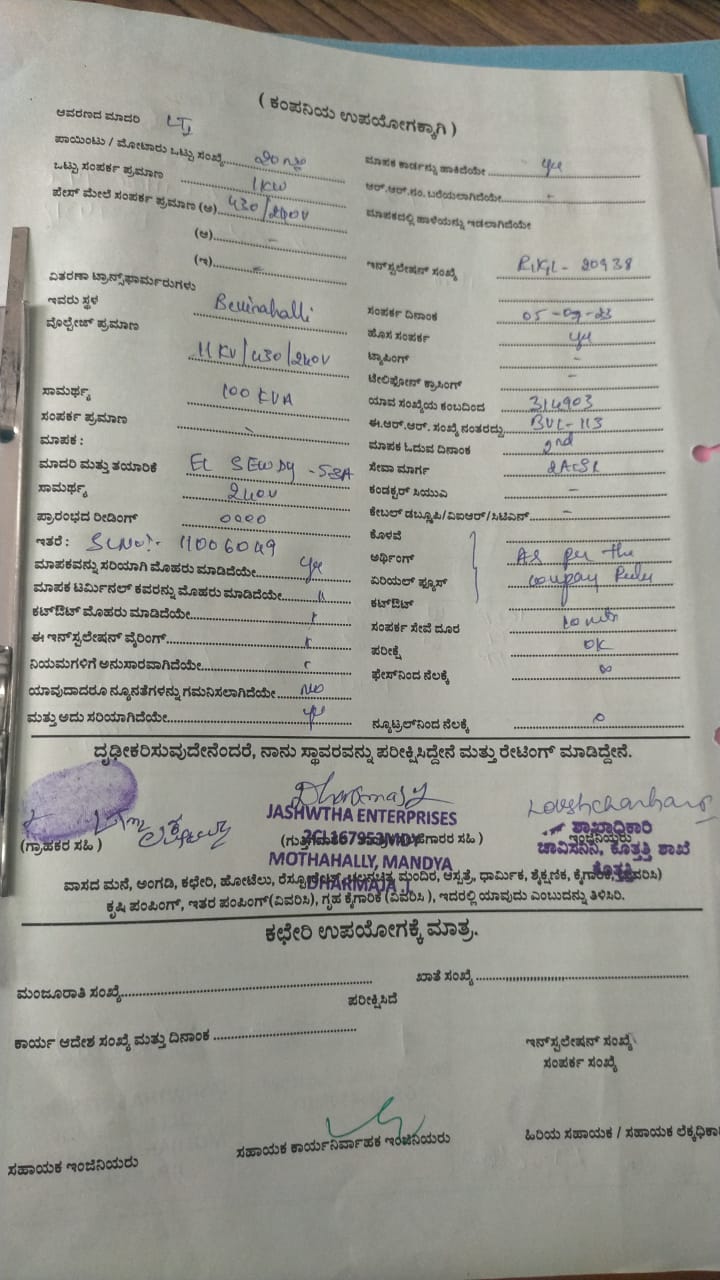 ( ಕಂಪನಿಯ ಉಪಯೋಗಕ್ಕಾಗಿ )
ಆವರಣದ ಮಾದರಿ LT
ಪಾಯಿಂಟು / ಮೋಟಾರು ಒಟ್ಟು ಸಂಖ್ಯೆ
ಒಟ್ಟು ಸಂಪರ್ಕ ಪ್ರಮಾಣ 1KW
ಫೇಸ್ ಮೇಲೆ ಸಂಪರ್ಕ ಪ್ರಮಾಣ (ಅ) 430/240V
(ಆ) -
(ಇ) -
ವಿತರಣಾ ಟ್ರಾನ್ಸ್‌ಫಾರ್ಮರುಗಳು
ಇವರು ಸ್ಥಳ Bevinahalli
ವೋಲ್ಟೇಜ್ ಪ್ರಮಾಣ
11KV/430/240V
ಸಾಮರ್ಥ್ಯ 100 KVA
ಸಂಪರ್ಕ ಪ್ರಮಾಣ -
ಮಾಪಕ :
ಮಾದರಿ ಮತ್ತು ತಯಾರಿಕೆ
ಸಾಮರ್ಥ್ಯ 240V
ಪ್ರಾರಂಭದ ರೀಡಿಂಗ್ 0000
ಇತರೆ : SLNO:- 11006049
ಮಾಪಕವನ್ನು ಸರಿಯಾಗಿ ಮೊಹರು ಮಾಡಿದೆಯೇ yes
ಮಾಪಕ ಟರ್ಮಿನಲ್ ಕವರನ್ನು ಮೊಹರು ಮಾಡಿದೆಯೇ "
ಕಟ್‌ಔಟ್ ಮೊಹರು ಮಾಡಿದೆಯೇ
ಈ ಇನ್‌ಸ್ಟಲೇಷನ್ ವೈರಿಂಗ್
ನಿಯಮಗಳಿಗೆ ಅನುಸಾರವಾಗಿದೆಯೇ
ಯಾವುದಾದರೂ ನ್ಯೂನತೆಗಳನ್ನು ಗಮನಿಸಲಾಗಿದೆಯೇ No
ಮತ್ತು ಅದು ಸರಿಯಾಗಿದೆಯೇ yes
ಮಾಪಕ ಕಾರ್ಡನ್ನು ಹಾಕಿದೆಯೇ yes
ಆರ್.ಆರ್.ನಂ. ಬರೆಯಲಾಗಿದೆಯೇ -
ಮಾಪಕದಲ್ಲಿ ಹಾಳೆಯನ್ನು ಇಡಲಾಗಿದೆಯೇ
ಇನ್‌ಸ್ಟಲೇಷನ್ ಸಂಖ್ಯೆ 20938
ಸಂಪರ್ಕ ದಿನಾಂಕ 05-09-23
ಹೊಸ ಸಂಪರ್ಕ yes
ಟ್ಯಾಪಿಂಗ್ -
ಟೇಲಿಫೋನ್ ಕ್ರಾಸಿಂಗ್ -
ಯಾವ ಸಂಖ್ಯೆಯ ಕಂಬದಿಂದ 314903
ಈ.ಆರ್.ಆರ್. ಸಂಖ್ಯೆ ನಂತರದ್ದು BVL-113
ಮಾಪಕ ಓದುವ ದಿನಾಂಕ 2nd
ಸೇವಾ ಮಾರ್ಗ
ಕಂಡಕ್ಟರ್ ಸಿಯುಎ -
ಕೇಬಲ್ ಡಬ್ಲ್ಯೂಪಿ/ವಿಐಆರ್/ಸಿಟಿಎಸ್ -
ಕೊಳವೆ
ಅರ್ಥಿಂಗ್ As per the
ಏರಿಯಲ್ ಫ್ಯೂಸ್ company Rules
ಕಟ್‌ಔಟ್
ಸಂಪರ್ಕ ಸೇವೆ ದೂರ 10 mtr
ಪರೀಕ್ಷೆ OK
ಫೇಸ್‌ನಿಂದ ನೆಲಕ್ಕೆ ∞
ನ್ಯೂಟ್ರಲ್‌ನಿಂದ ನೆಲಕ್ಕೆ 0
ದೃಢೀಕರಿಸುವುದೇನೆಂದರೆ, ನಾನು ಸ್ಥಾವರವನ್ನು ಪರೀಕ್ಷಿಸಿದ್ದೇನೆ ಮತ್ತು ರೇಟಿಂಗ್ ಮಾಡಿದ್ದೇನೆ.
Dharamaj
JASHWTHA ENTERPRISES
2CL167953MDY
MOTHAHALLY, MANDYA
DHARMAJA J
(ಗ್ರಾಹಕರ ಸಹಿ )
ಶಾಖಾಧಿಕಾರಿ
ಇಂಜಿನಿಯರು
ಚಾವಿಸನಿನಿ, ಕೊತ್ತತ್ತಿ ಶಾಖೆ
ಕೊತ್ತತ್ತಿ
ವಾಸದ ಮನೆ, ಅಂಗಡಿ, ಕಛೇರಿ, ಹೋಟೆಲು, ರೆಸ್ಟೋರೆಂಟ್, ಚಲನಚಿತ್ರ ಮಂದಿರ, ಆಸ್ಪತ್ರೆ, ಧಾರ್ಮಿಕ, ಶೈಕ್ಷಣಿಕ, ಕೈಗಾರಿಕೆ, (ವಿವರಿಸಿ)
ಕೃಷಿ ಪಂಪಿಂಗ್, ಇತರ ಪಂಪಿಂಗ್(ವಿವರಿಸಿ), ಗೃಹ ಕೈಗಾರಿಕೆ (ವಿವರಿಸಿ ), ಇದರಲ್ಲಿ ಯಾವುದು ಎಂಬುದನ್ನು ತಿಳಿಸಿರಿ.
ಕಛೇರಿ ಉಪಯೋಗಕ್ಕೆ ಮಾತ್ರ.
ಮಂಜೂರಾತಿ ಸಂಖ್ಯೆ
ಖಾತೆ ಸಂಖ್ಯೆ
ಪರೀಕ್ಷಿಸಿದೆ
ಕಾರ್ಯ ಆದೇಶ ಸಂಖ್ಯೆ ಮತ್ತು ದಿನಾಂಕ
ಇನ್‌ಸ್ಟಲೇಷನ್ ಸಂಖ್ಯೆ
ಸಂಪರ್ಕ ಸಂಖ್ಯೆ
ಸಹಾಯಕ ಇಂಜಿನಿಯರು
ಸಹಾಯಕ ಕಾರ್ಯನಿರ್ವಾಹಕ ಇಂಜಿನಿಯರು
ಹಿರಿಯ ಸಹಾಯಕ / ಸಹಾಯಕ ಲೆಕ್ಕಧಿಕಾರಿ